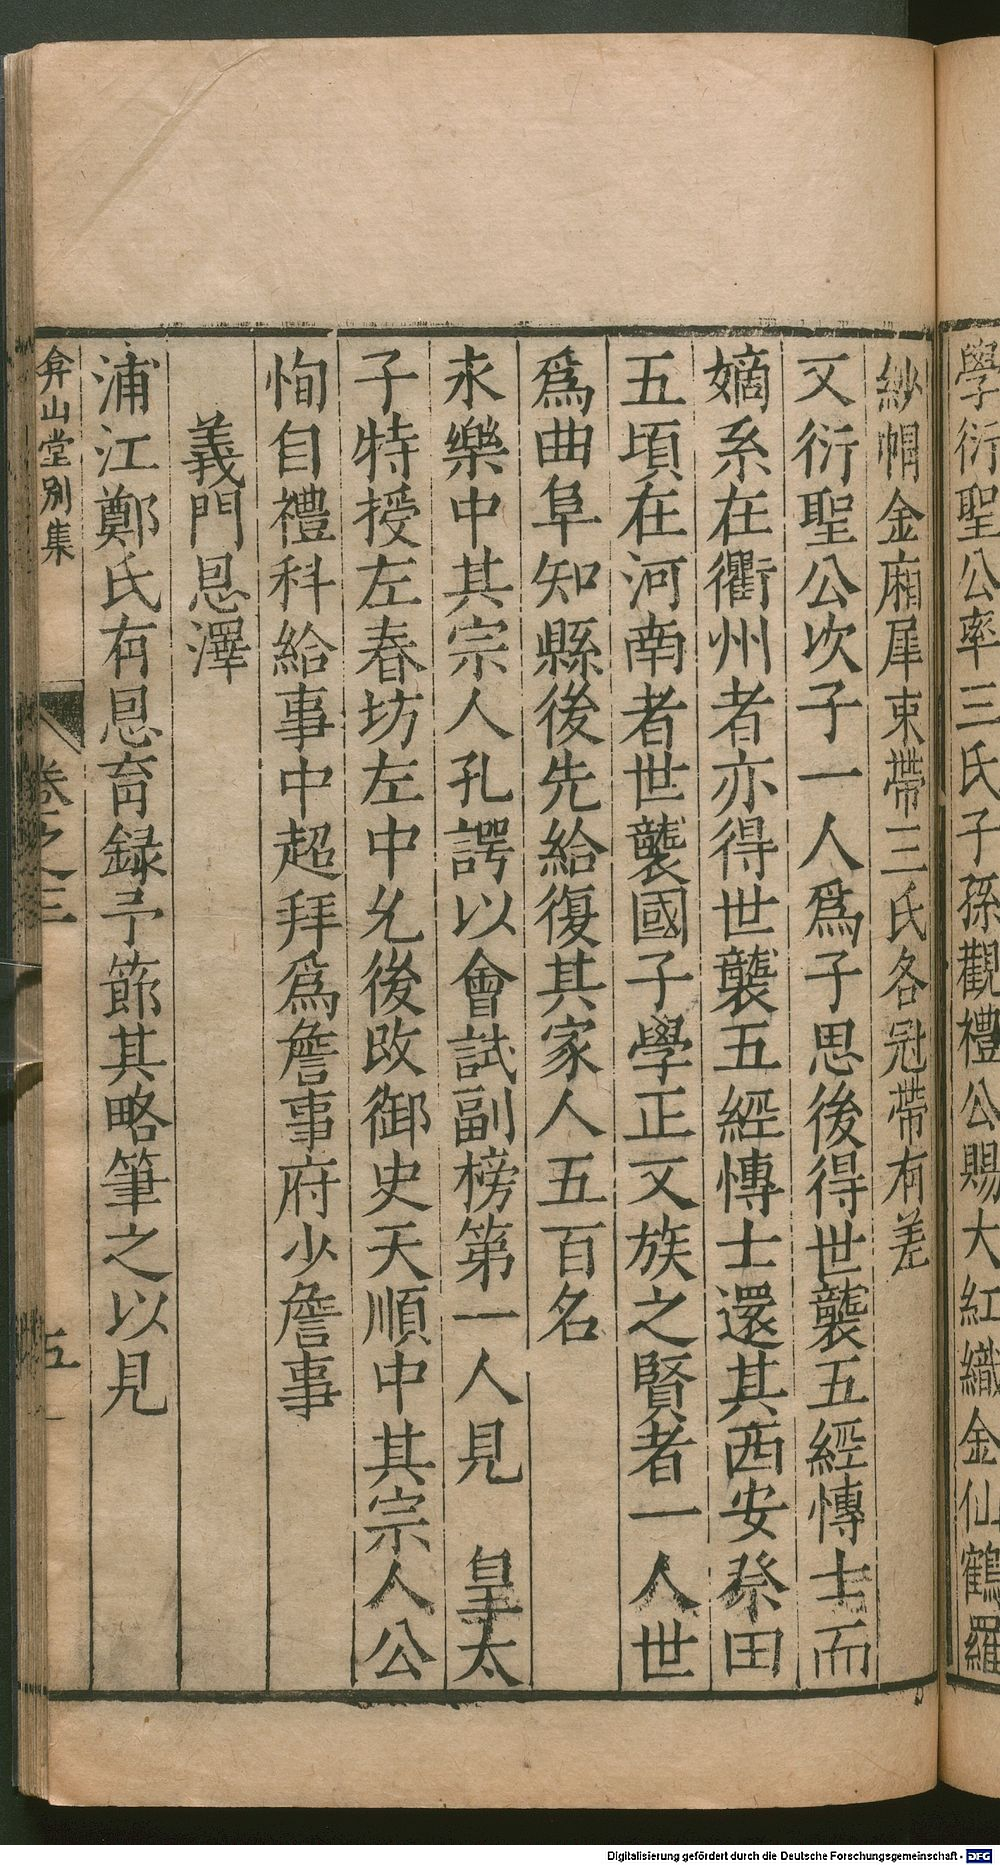 學衍聖公率三氏子孫觀禮公賜大紅織金仙鶴羅
紗帽金廂犀束帶三氏各冠帶有差
又衍聖公次子一人爲子思後得世襲五經愽士而
嫡系在衢州者亦得世襲五經愽士還其西安祭田
五頃在河南者世襲國子學正又族之賢者一人世
爲曲阜知縣後先給復其家人五百名
永樂中其宗人孔諤以會試副榜第一人見　皇太
子特授左春坊左中允後改御史天順中其宗人公
恂自禮科給事中超拜爲詹事府少詹事
義門恩澤
浦江鄭氏有恩育録予節其略筆之以見
弇山堂別集
卷之三
五
Digitalisierung gefördert durch die Deutsche Forschungsgemeinschaft - DFG